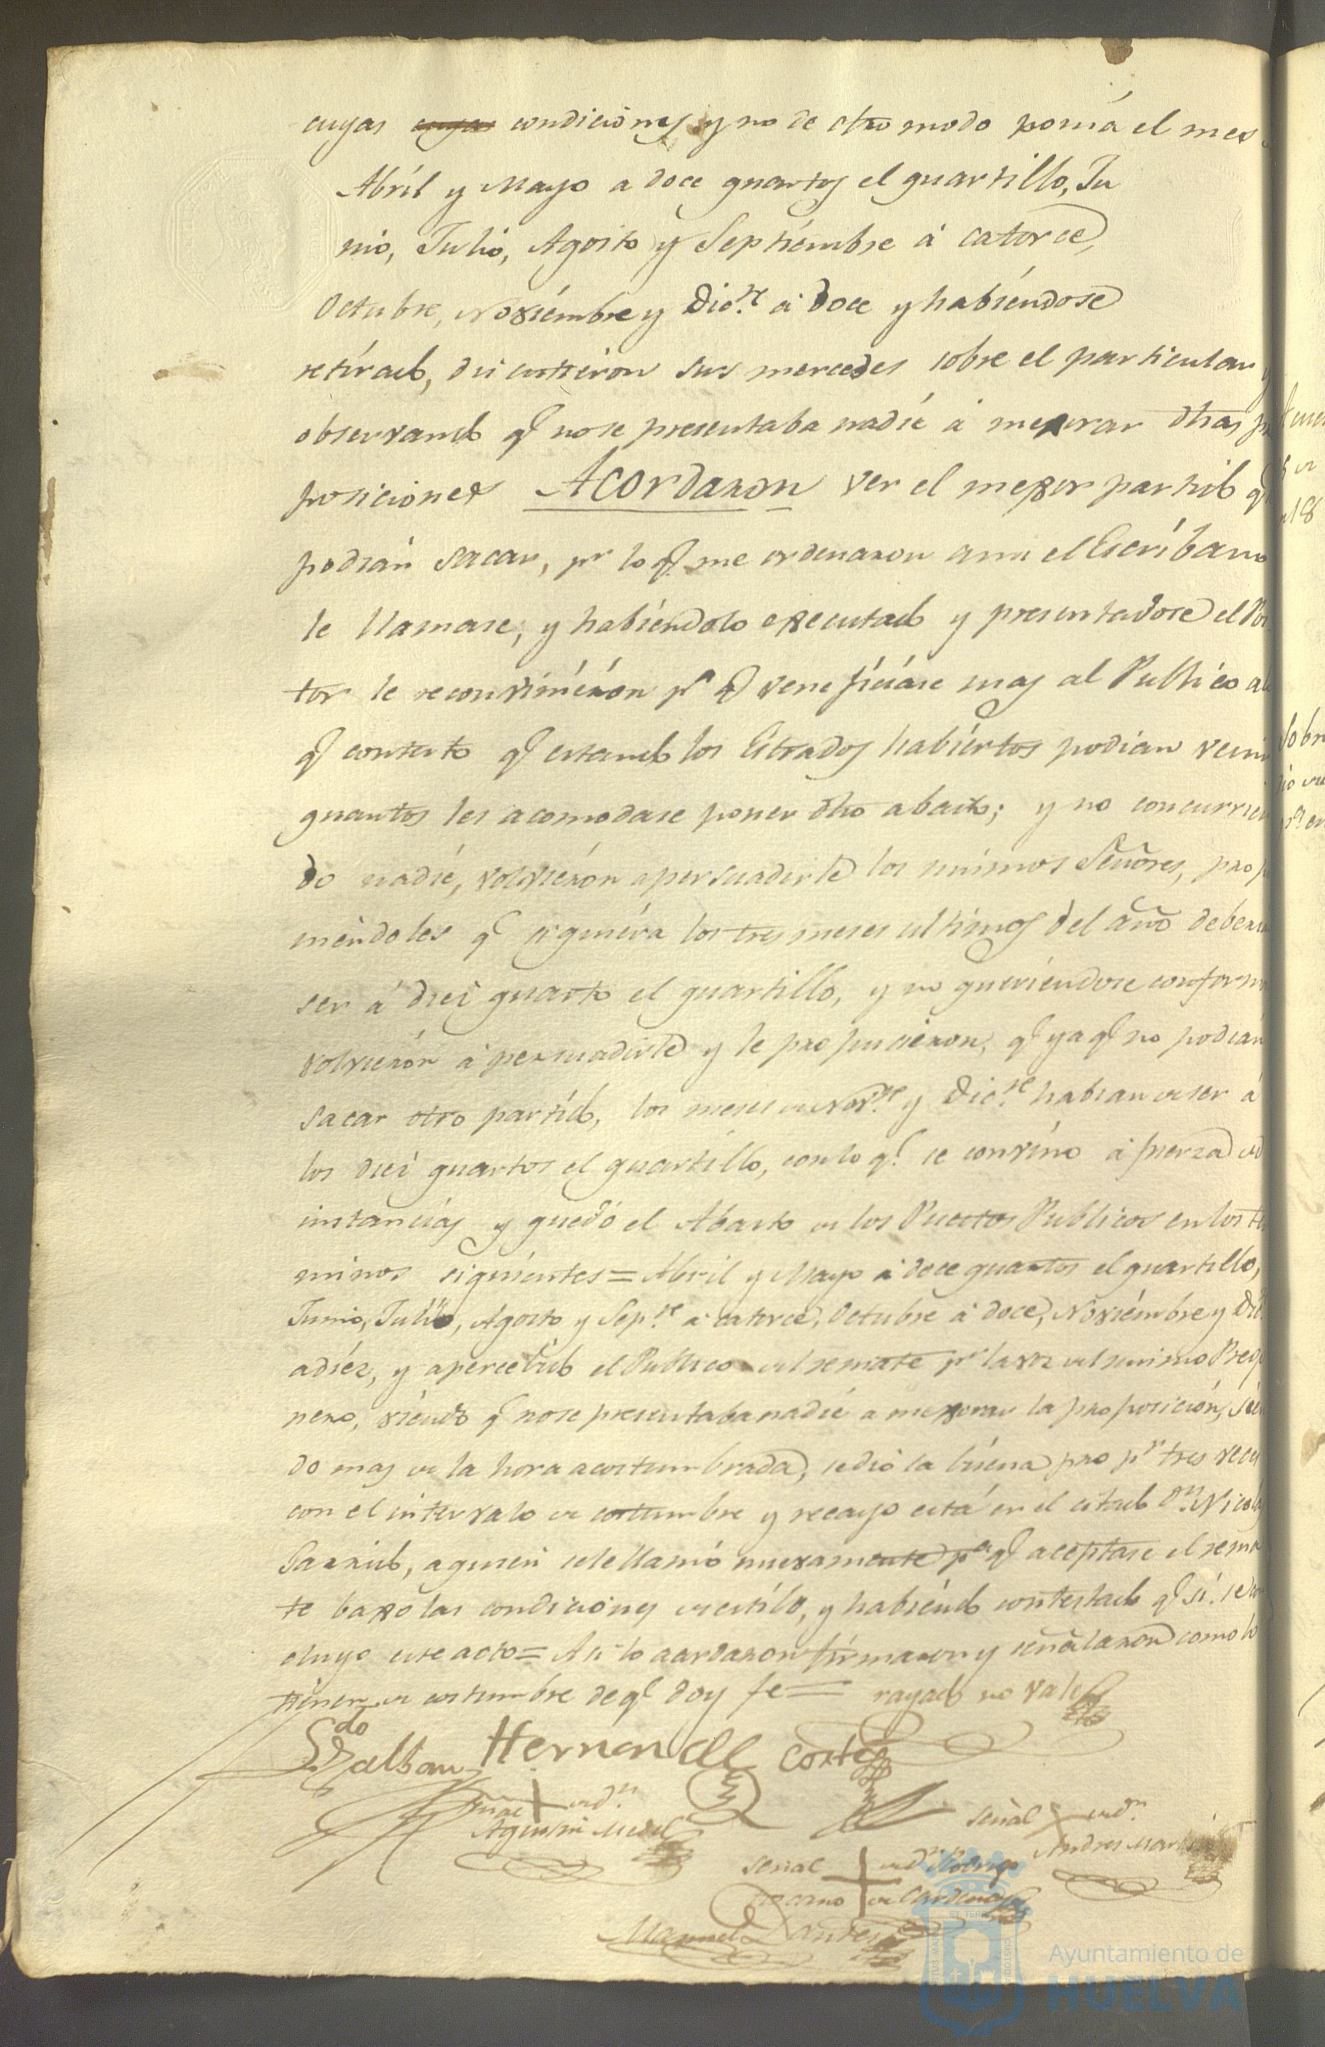 cuyas cuyas condiciones y no de otro modo ponia el mes
Abril y Mayo a doce quartos el quartillo, Ju
nio, Julio, Agosto y Septiémbre á catorce,
Octubre, Noviémbre y Dic.re á doce y habiéndose
retirado, discutieron sus mercedes sobre el particular y
observando q.e no se presentaba nadié á mejorar dhas pro
posiciones Acordaron ver el mejor partido q.e
podian sacar, pr lo q.e me ordenaron a mi el Escribano
le llamase, y habiéndolo executado y presentadose el Pos
tor le reconviniéron pa q.e veneficiáse mas al Publico a lo
q.e contesto q.e estando los Estrados habiértos podian venir
quantos les acomodase poner dho abasto; y no concurrien
do nadié, volviéron a persuadirle los mismos Señores, propo
niéndoles q.e siquiéra los tres meses ultimos del año deberan
ser á diez quartos el quartillo, y no queriéndose conformar
volviéron á persuadirle y le propusieron, q.e ya q.e no podian
sacar otro partido, los meses de Nov.re y Dic.re habian de ser á
los diez quartos el quartillo, con lo q.e se convino á fuerza de
instancias y quedó el Abasto de los Puestos Publicos en los ter
minos siguiéntes = Abril y Mayo á doce quartos el quartillo,
Junio, Julio, Agosto y Sep.re á catorce, Octubre á doce, Noviémbre y Dic.
a diéz, y apercebido el Publico del remate pr la voz del mismo Prego
nero, viéndo q.e no se presentaba nadié a mejorar la proposición, sién
do mas de la hora acostumbrada, se dió la buéna pro pr tres veces
con el intervalo de costumbre y recayo está en el citado Dn. Nicolas
Garrido, a quien se le llamó nuevamente pa q.e aceptase el rema
te baxo las condiciones de estilo, y habiéndo contestado q.e si se con
cluyo este acto = Asi lo acordaron firmaron y señalaron como lo
tienen de costumbre de q.e doy fe = rayado no vale
Ldo Zalban Hernandez Cortes
Señal de Dn.
Agustin Medel
Señal de Dn.
Andres Martin
Señal de Dn Rodrigo
de Cardenas
Manuel
Ayuntamiento de
HUELVA